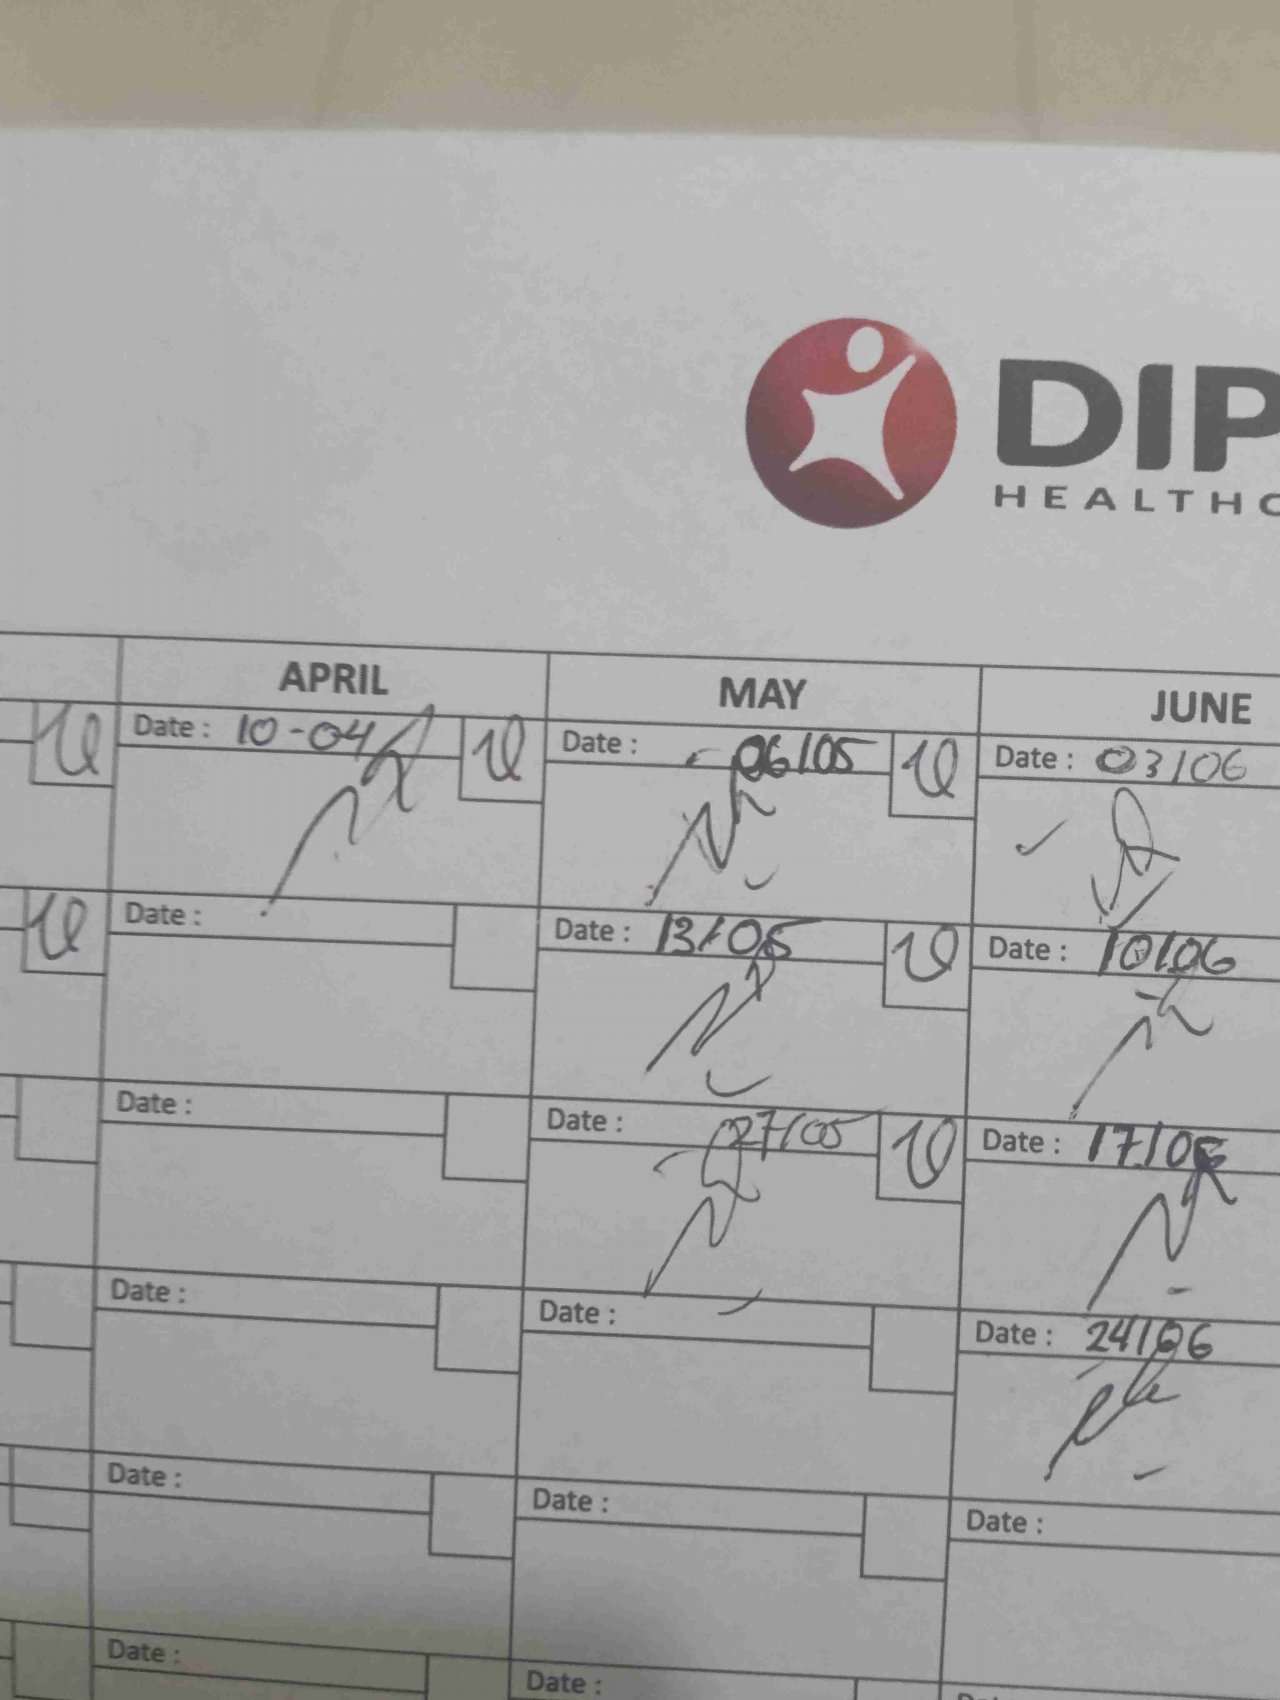 DIP
HEALTHC
APRIL MAY JUNE
Date : 10-04 Date : 06/05 Date : 03/06
Date : Date : 13/05 Date : 10/06
Date : Date : 27/05 Date : 17/06
Date : Date : Date : 24/06
Date : Date : Date :
Date : Date :